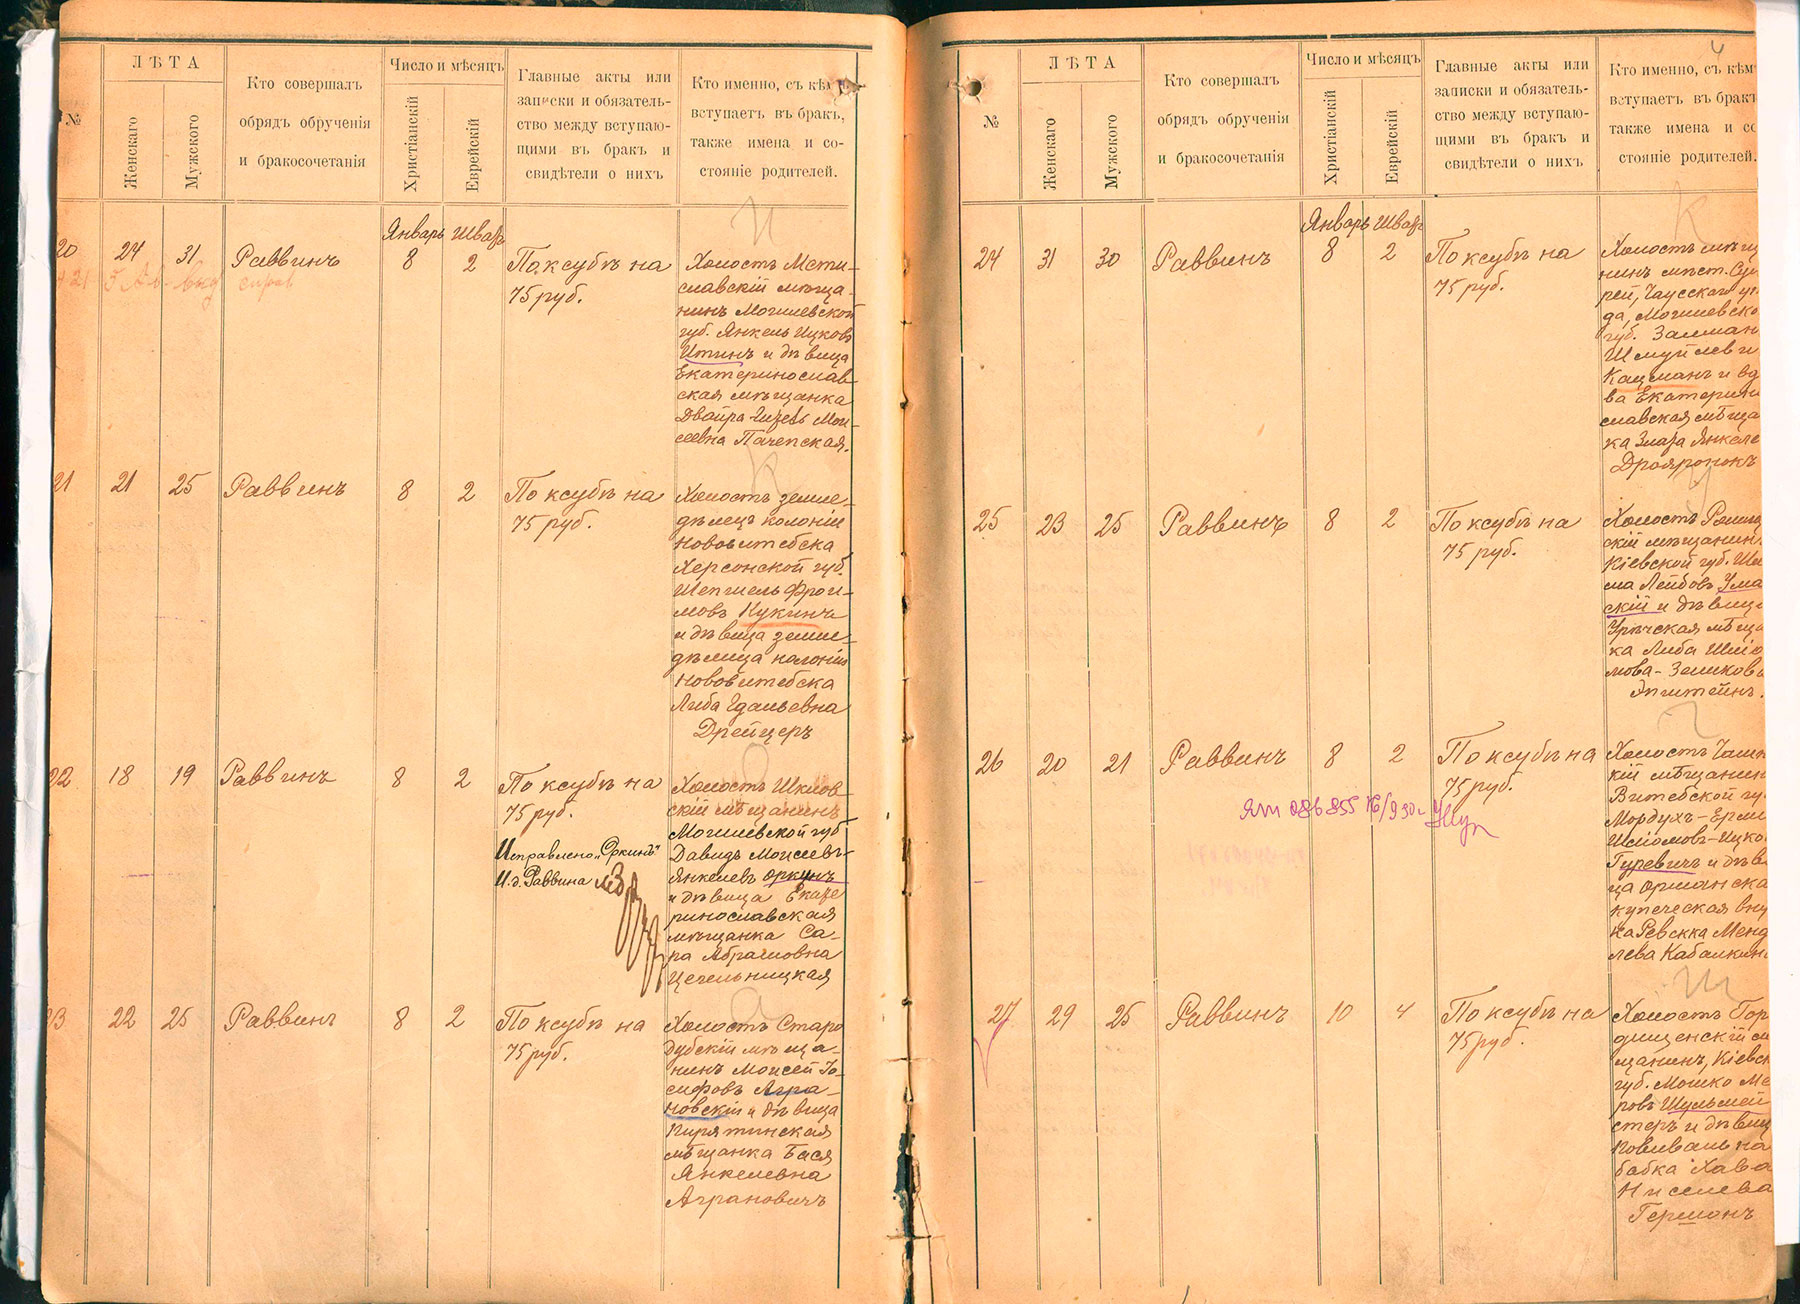 №
ЛѢТА
Женскаго
Мужского
Кто совершалъ
обрядъ обрученія
и бракосочетанія
Число и мѣсяцъ
Христіанскій
Еврейскій
Главные акты или
записки и обязатель-
ство между вступаю-
щими въ бракъ и
свидѣтели о нихъ
Кто именно, съ кѣмъ
вступаетъ въ бракъ,
также имена и со-
стояніе родителей.
И
Январь Шватъ
20 24 31 Раввинъ 8 2
По ксубѣ на
75 руб.
Холостъ Мсти-
славскій мѣща-
нинъ Могилевской
губ. Янкель Ицковъ
Итинъ и дѣвица
Екатеринослав-
ская мѣщанка
Двайра Мои-
сеевна Пачепская.
К
21 21 25 Раввинъ 8 2
По ксубѣ на
75 руб.
Холостъ земле-
дѣлецъ колоніи
Нововитебска
Херсонской губ.
Шепшель Фрои-
мовъ Кукинъ
и дѣвица земле-
дѣлица колоніи
Нововитебска
Либа Гдальевна
Дрейцеръ
О
22 18 19 Раввинъ 8 2
По ксубѣ на
75 руб.
Исправлено „Оркинъ"
И. д. Раввина
Холостъ Шклов-
скій мѣщанинъ
Могилевской губ.
Давидъ Моисеевъ-
Янкелевъ Оркинъ
и дѣвица Екате
ринославская
мѣщанка Са-
ра Абрамовна
Цечельницкая
А
23 22 25 Раввинъ 8 2
По ксубѣ на
75 руб.
Холостъ Старо
дубскій мѣща-
нинъ Моисей Іо-
сифовъ Агра-
новскій и дѣвица
Пирятинская
мѣщанка Бася
Янкелевна
Аграновичъ
4
№
ЛѢТА
Женскаго
Мужского
Кто совершалъ
обрядъ обрученія
и бракосочетанія
Число и мѣсяцъ
Христіанскій
Еврейскій
Главные акты или
записки и обязатель-
ство между вступаю-
щими въ бракъ и
свидѣтели о нихъ
Кто именно, съ кѣмъ
вступаетъ въ бракъ
также имена и со
стояніе родителей.
К
Январь Шватъ
24 31 30 Раввинъ 8 2
По ксубѣ на
75 руб.
Холостъ мѣщ
нинъ мѣст. Сух
рей, Чаусскаго уѣ
да, Могилевско
губ. Залман
Шмуйлеви
Кацманъ и вдо
ва Екатерин
славская мѣща
ка Злата Янкеле
У
25 23 25 Раввинъ 8 2
По ксубѣ на
75 руб.
Холостъ
скій мѣщанин
Кіевской губ. Шл
ма Лейбовъ Ума
скій и дѣвица
Урѣчская мѣща
ка Либа Шліо
мова-Зеликова
Эпштейнъ.
Г
26 20 21 Раввинъ 8 2
По ксубѣ на
75 руб.
Холостъ Чашн
кій мѣщанин
Витебской гу
Мордухъ-
Шліомовъ-Ицко
Гуревичъ и дѣв
ца Оршанска
купеческая вну
ка Ревекка Менд
лева Кабалкина
Ш
27 29 25 Раввинъ 10 4
По ксубѣ на
75 руб.
Холостъ Гор
дищенскій м
щанинъ, Кіевск
губ. Мошко Ме
ровъ Шульмей
стеръ и дѣвиц
Ковшевань на
бабка Хава
Нисслева
Германъ